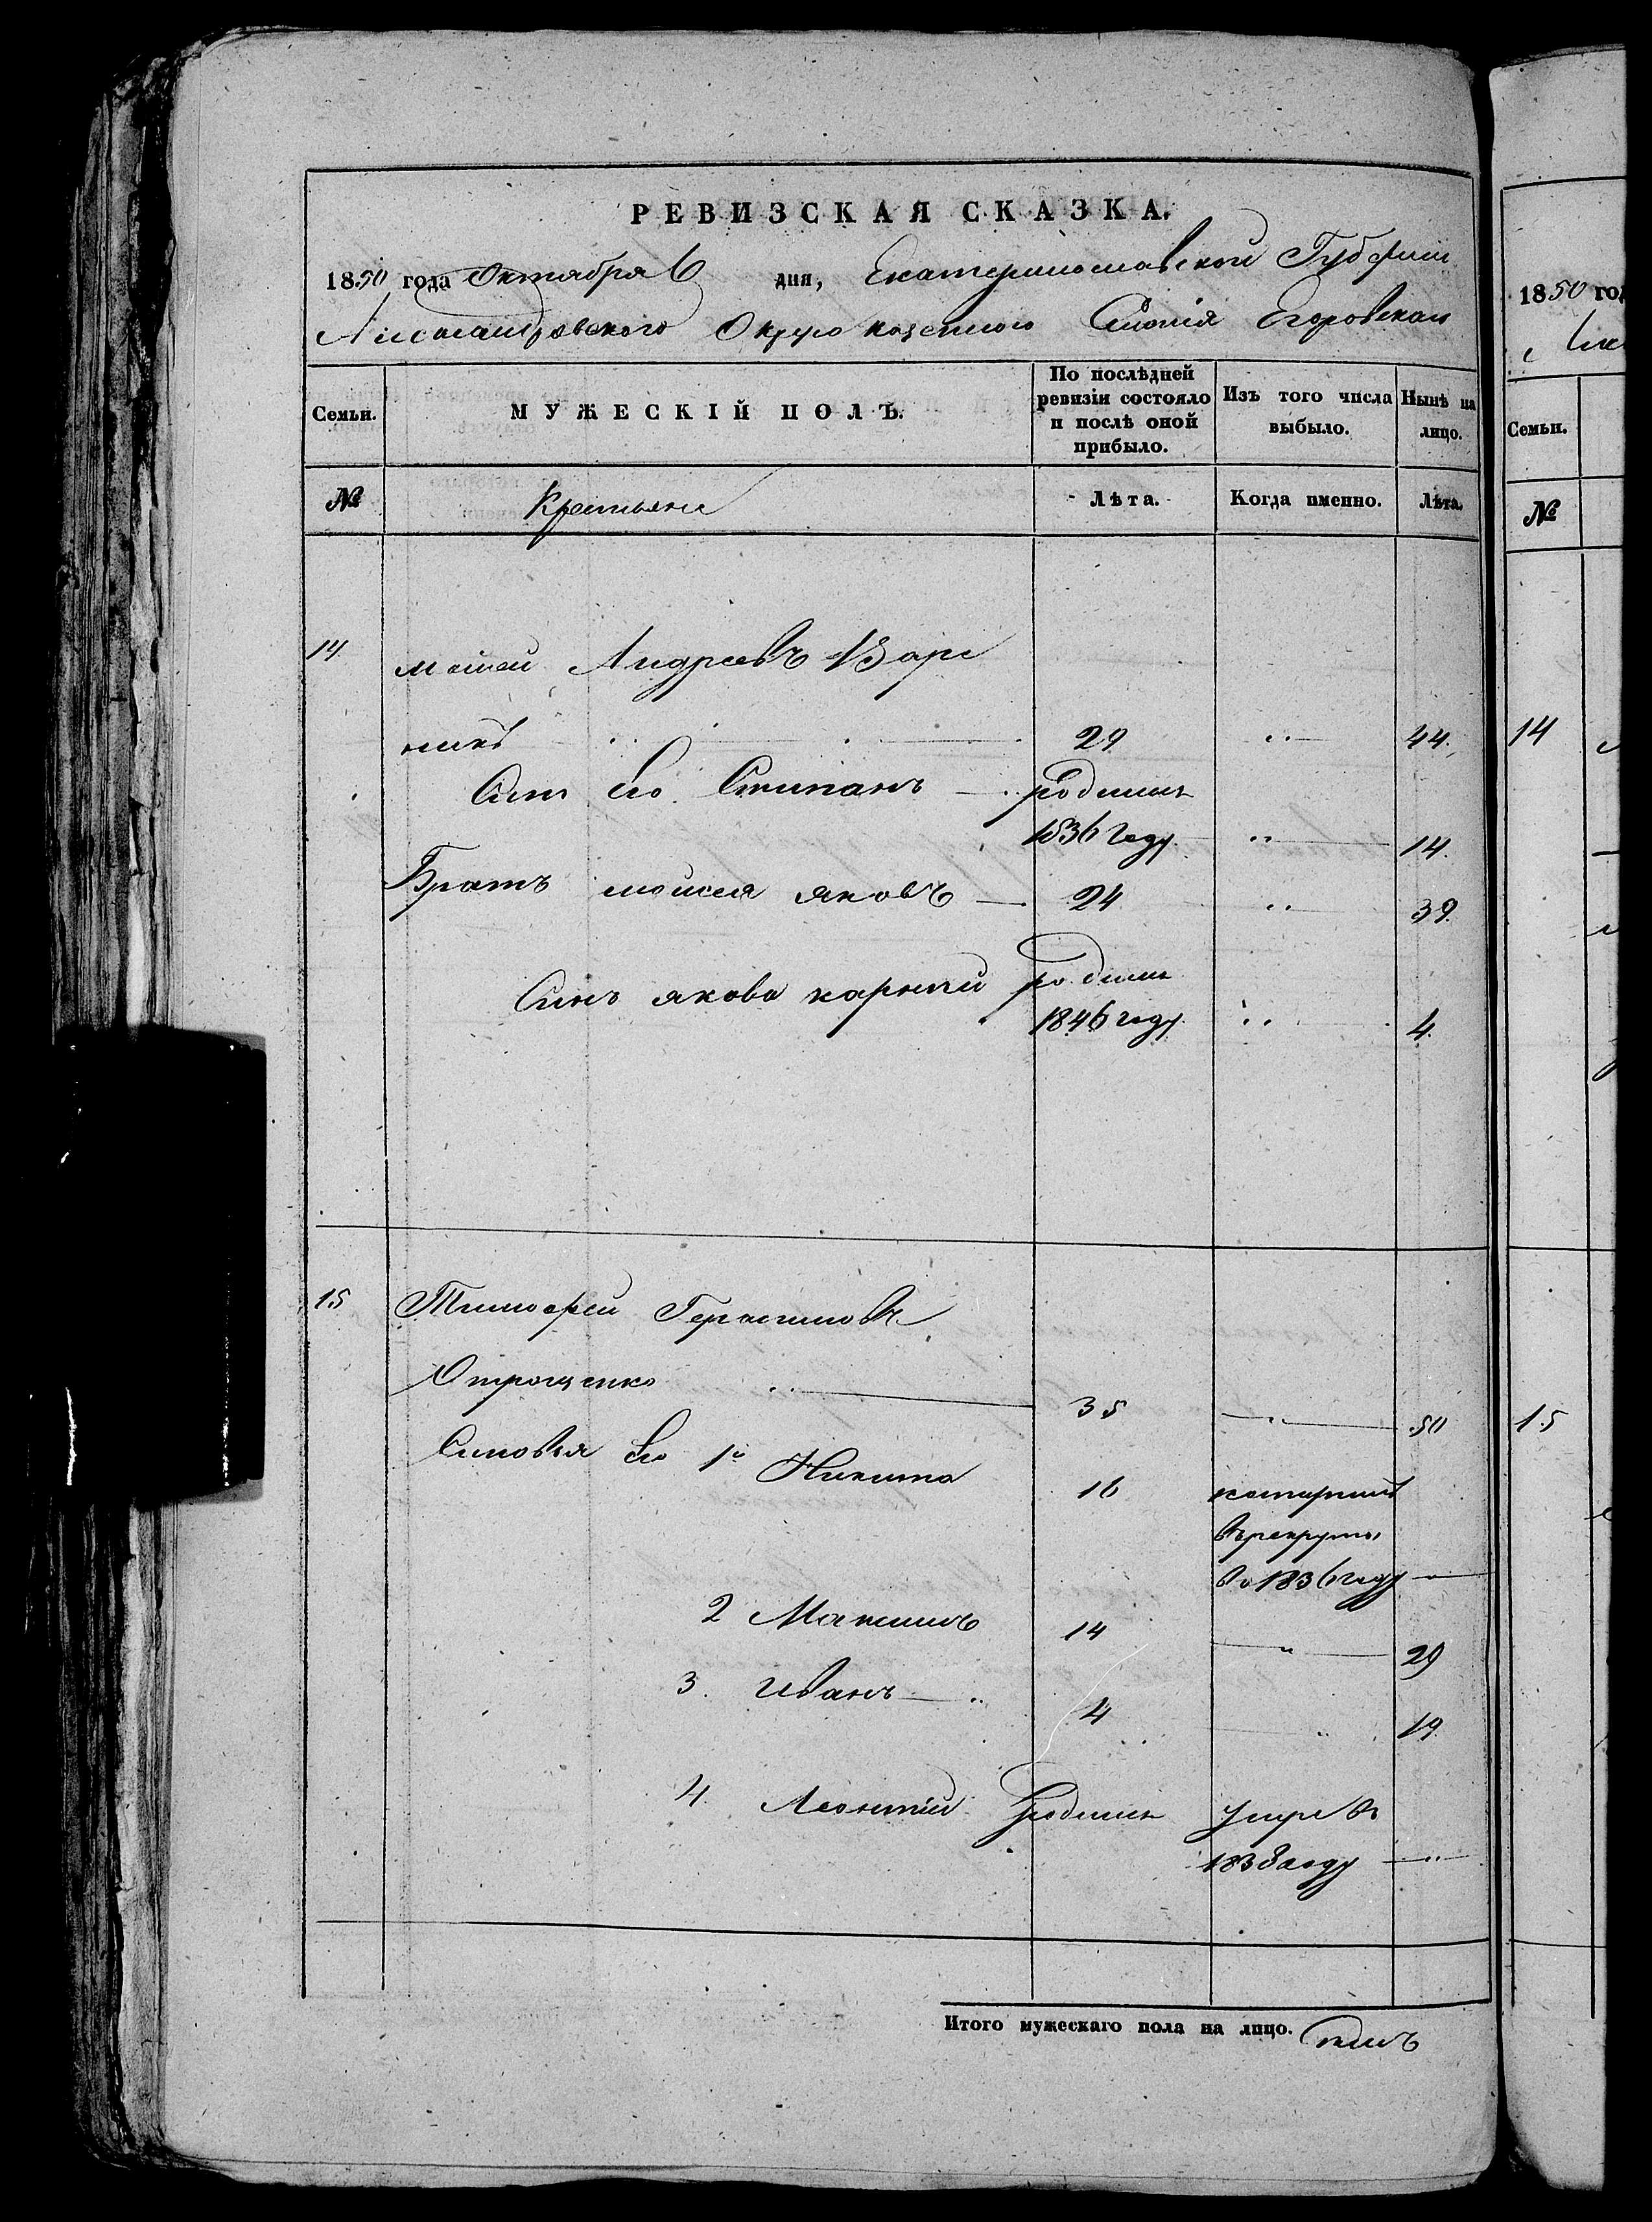 РЕВИЗСКАЯ СКАЗКА.
1850 года Октября 6 дня, Екатеринославской Губернии
Александровского Округа казенного Селенія Егоровском
Семьи. МУЖЕСКІЙ ПОЛЪ. По послѣдней ревизіи состояло и послѣ оной прибыло. Изъ того числа выбыло. Нынѣ на лицо.
№ Крестьяне Лѣта. Когда именно. Лѣта.
14 Моисей Андреевъ Варе
никъ 29 " 44.
Синъ Его Степанъ родился
1836 году " 14.
Братъ моисея яковъ 24 " 39.
Синъ якова карнѣй родился
1846 году " 4.
15 Тимофей Герасимовъ
Отрощенко 35 " 50
Синовья Его 1й Никита 16
въ рекруты
въ 1836 году "
2 Максимъ 14 " 29
3. Иванъ 4 " 19.
4. Леонтій родился умре въ
1838 году "
Итого мужескаго пола на лицо.
1850 год
Семьи.
№
14
15